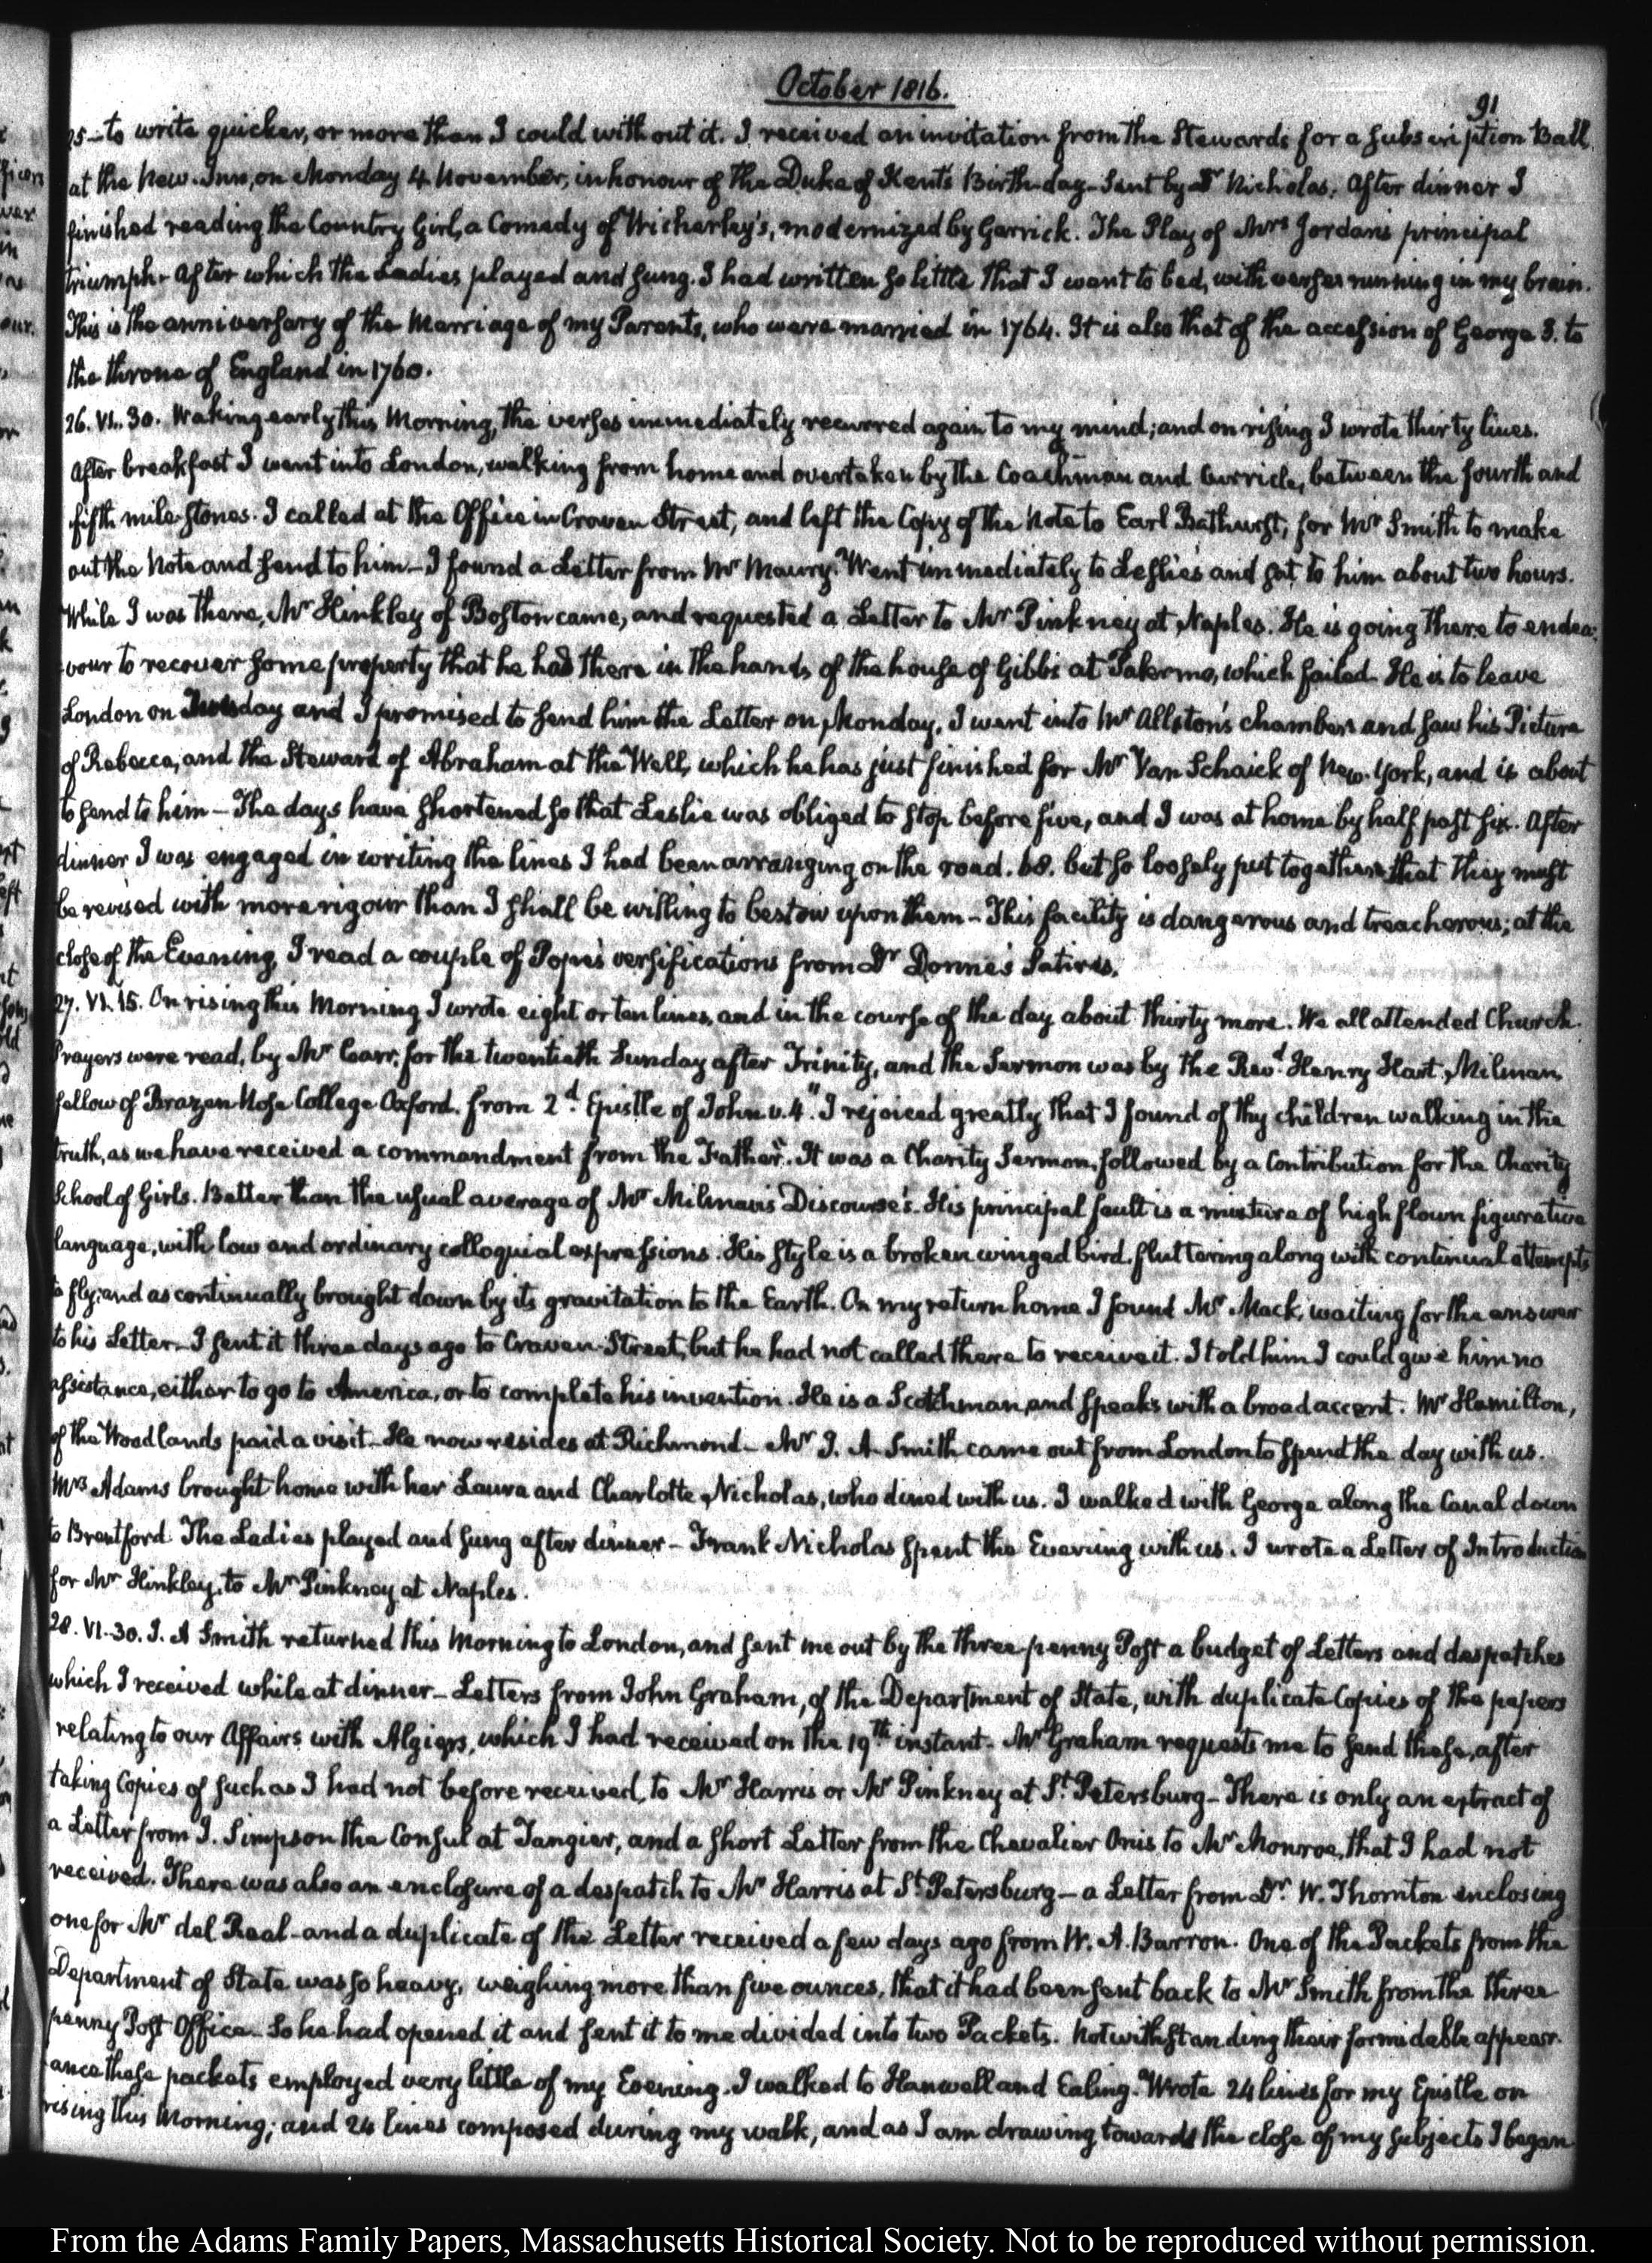 October 1816.
91
25— to write quicker, or more than I could without it. I received an invitation from the Stewards for a subscription Ball,
at the New-Inn, on Monday 4 November, in honour of the Duke of Kent's Birth-day—sent by Dr Nicholas. After dinner I
finished reading the Country Girl, a Comedy of Wicherley's, modernized by Garrick. The Play of Mrs Jordan's principal
triumph— After which the Ladies played and sung. I had written so little that I went to bed, with verses running in my brain.
This is the anniversary of the Marriage of my Parents, who were married in 1764. It is also that of the accession of George 3. to
the throne of England in 1760.
26. VI. 30. Waking early this Morning, the verses immediately recurred again to my mind; and on rising I wrote thirty lines.
After breakfast I went into London, walking from home and overtaken by the Coachman and Curricle, between the fourth and
fifth mile-stones. I called at the Office in Craven Street, and left the Copy of the Note to Earl Bathurst, for Mr Smith to make
out the Note and send to him— I found a Letter from Mr Maury. Went immediately to Leslie's and sat to him about two hours.
While I was there, Mr Hinkley of Boston came, and requested a Letter to Mr Pinkney at Naples. He is going there to endea-
vour to recover some property that he had there in the hands of the house of Gibbs at Palermo, which failed. He is to leave
London on Tuesday and I promised to send him the Letter on Monday. I went into Mr Allston's chambers and saw his Picture
of Rebecca, and the Steward of Abraham at the Well, which he has just finished for Mr Van Schaick of New-York, and is about
to send to him— The days have shortened so that Leslie was obliged to stop before five, and I was at home by half past six. After
dinner I was engaged in writing the lines I had been arranging on the road. 68. but so loosely put together that they must
be revised with more rigour than I shall be willing to bestow upon them— This facility is dangerous and treacherous; at the
close of the Evening, I read a couple of Pope's versifications from Dr Donne's Satires.
27. VI. 15. On rising this Morning I wrote eight or ten lines, and in the course of the day about thirty more. We all attended Church.
Prayers were read, by Mr Carr, for the twentieth Sunday after Trinity, and the Sermon was by the Revd Henry Hart Milman,
fellow of Brazen Nose College Oxford. from 2d Epistle of John v. 4. "I rejoiced greatly that I found of thy children walking in the
truth, as we have received a commandment from the Father". It was a Charity Sermon, followed by a Contribution for the Charity
School of Girls. Better than the usual average of Mr Milman's Discourse's. His principal fault is a mixture of high flown figurative
language, with low and ordinary colloquial expressions. His style is a broken winged bird, fluttering along with continual attempts
to fly; and as continually brought down by its gravitation to the Earth. On my return home I found Mr Mack, waiting for the answer
to his Letter— I sent it three days ago to Craven-Street, but he had not called there to receive it. I told him I could give him no
assistance, either to go to America, or to complete his invention. He is a Scotchman, and speaks with a broad accent. Mr Hamilton,
of the Woodlands paid a visit— He now resides at Richmond— Mr J. A. Smith came out from London to spend the day with us.
Mrs Adams brought home with her Laura and Charlotte Nicholas, who dined with us. I walked with George along the Canal down
to Brentford. The Ladies played and sung after dinner— Frank Nicholas spent the Evening with us. I wrote a Letter of Introduction
for Mr Hinkley, to Mr Pinkney at Naples.
28. VI. 30. J. A Smith returned this Morning to London, and sent me out by the three-penny Post a budget of Letters and despatches
which I received while at dinner— Letters from John Graham, of the Department of State, with duplicate Copies of the papers
relating to our Affairs with Algiers, which I had received on the 19th instant— Mr Graham requests me to send these, after
taking Copies of such as I had not before received, to Mr Harris or Mr Pinkney at St Petersburg— There is only an extract of
a Letter from J. Simpson the Consul at Tangier, and a short Letter from the Chevalier Onis to Mr Monroe, that I had not
received. There was also an enclosure of a despatch to Mr Harris at St Petersburg— a Letter from Dr W. Thornton enclosing
one for Mr del Real— and a duplicate of the Letter received a few days ago from W. A. Barron. One of the Packets from the
Department of State was so heavy, weighing more than five ounces, that it had been sent back to Mr Smith from the three
penny Post Office— So he had opened it and sent it to me divided into two Packets. Notwithstanding their formidable appear-
ance these packets employed very little of my Evening. I walked to Hanwell and Ealing. Wrote 24 lines for my Epistle on
rising this Morning; and 24 lines composed during my walk, and as I am drawing towards the close of my subjects I began
From the Adams Family Papers, Massachusetts Historical Society. Not to be reproduced without permission.